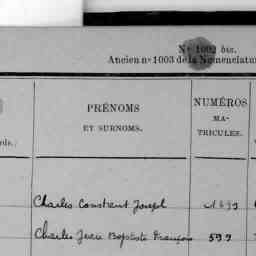 N° 1002 bis.
Ancien n° 1003 de la Nomenclatu
PRÉNOMS
ET SURNOMS.
NUMÉROS
MA-
TRICULES.
rds.)
Charles Constant Joseph
Charles Jean Baptiste François 599